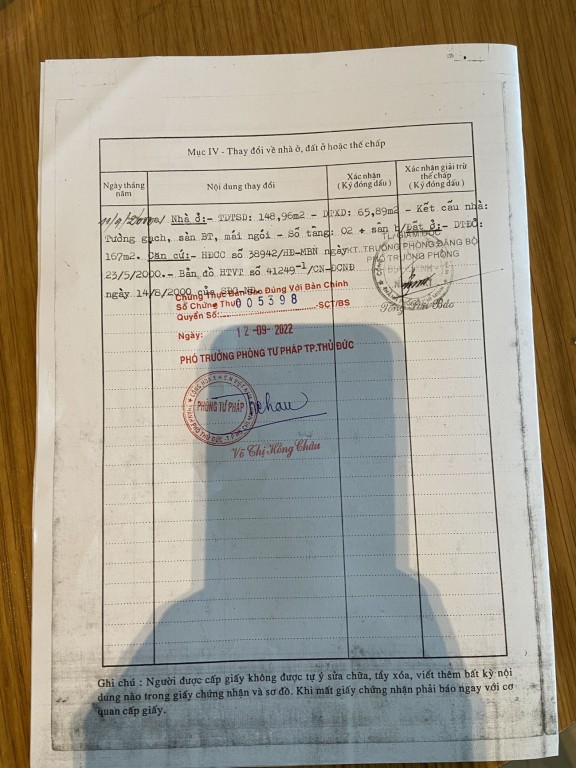 Mục IV - Thay đổi về nhà ở, đất ở hoặc thế chấp
Ngày tháng năm
Nội dung thay đổi
Xác nhận (Ký đóng dấu)
Xác nhận giải trừ thế chấp (Ký đóng dấu)
Nhà ở:- TDTSD: 148,96m2 - DTXD: 65,89m2 - Kết cấu nhà:
Tường gạch, sàn BT, mái ngói - Số tầng: 02 + sân Đất ở:- DTĐỞ:
167m2. Căn cứ:- HĐCC số 38942/HĐ-MBN ngày
23/5/2000.- Bản đồ HTVT số 41249-1/CN-ĐCNĐ
ngày 14/8/2000 của
TL/GIÁM ĐỐC
KT.TRƯỞNG PHÒNG ĐĂNG BỘ
PHÓ TRƯỞNG PHÒNG
Chứng Thực Bản Sao Đúng Với Bản Chính
Số Chứng Thực 005398
Quyển Số:..............-SCT/BS
Ngày: 12-09-2022
PHÓ TRƯỞNG PHÒNG TƯ PHÁP TP.THỦ ĐỨC
PHÒNG TƯ PHÁP
Võ Thị Hồng Châu
Ghi chú : Người được cấp giấy không được tự ý sửa chữa, tẩy xóa, viết thêm bất kỳ nội
dung nào trong giấy chứng nhận và sơ đồ. Khi mất giấy chứng nhận phải báo ngay với cơ
quan cấp giấy.